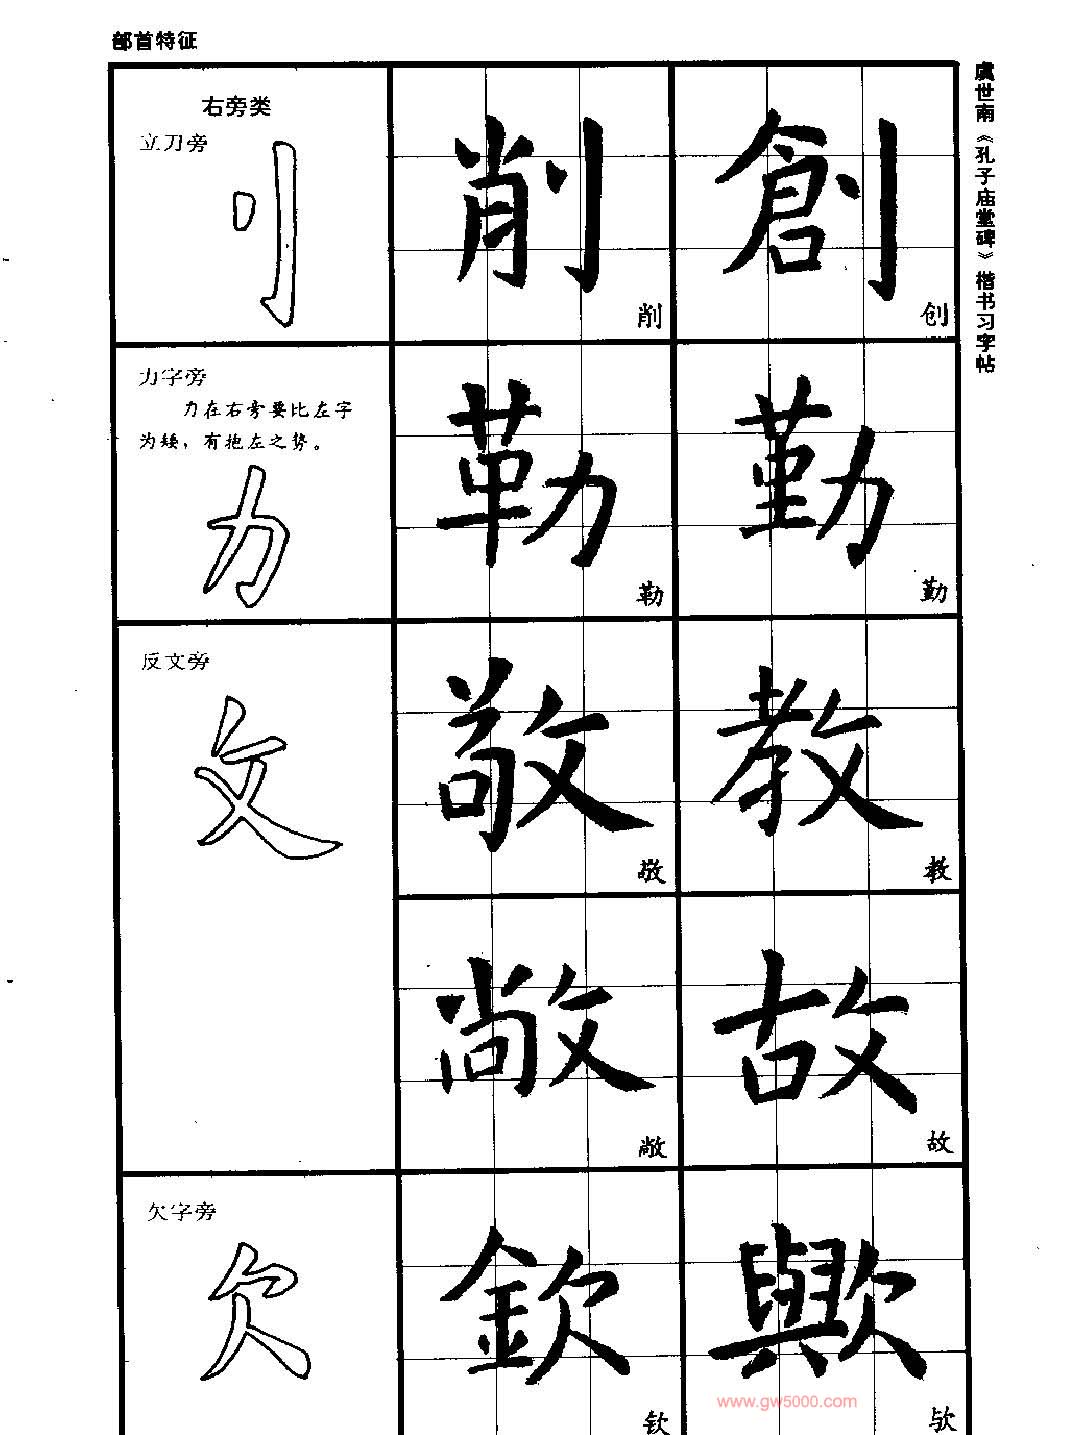 部首特征
虞世南《孔子庙堂碑》楷书习字帖
右旁类
立刀旁
刂
削
削
創
创
力字旁
力在右旁要比左字
为矮，有抱左之势。
力
勒
勒
勤
勤
反文旁
攵
敬
教
教
敞
敞
故
故
欠字旁
欠
欽
钦
歟
欤
www.gw5000.com